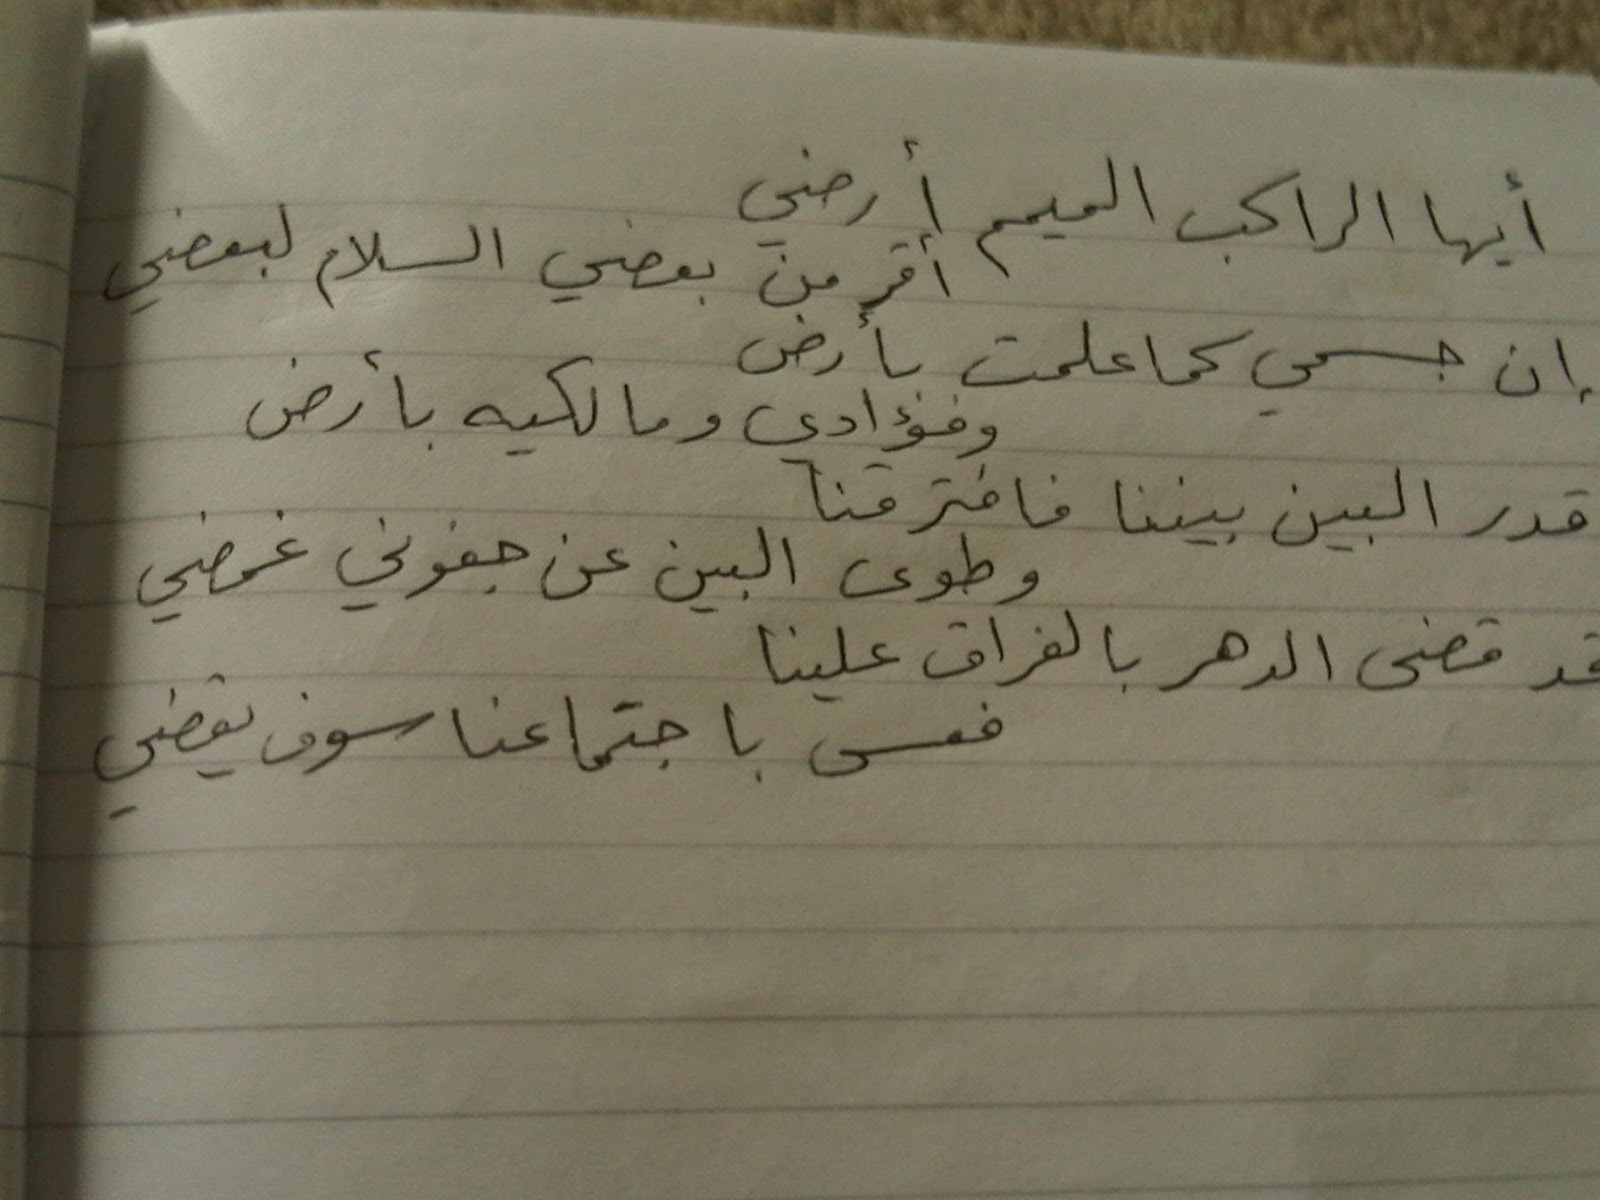 أيها الراكب الميمم أرضي
أقر من بعضي السلام لبعضي
إن جسمي كما علمت بأرض
وفؤادي ومالكيه بأرض
قدر البين بيننا فافترقنا
وطوى البين عن جفوني غمضي
قد قضى الدهر بالفراق علينا
فعسى باجتماعنا سوف يقضي